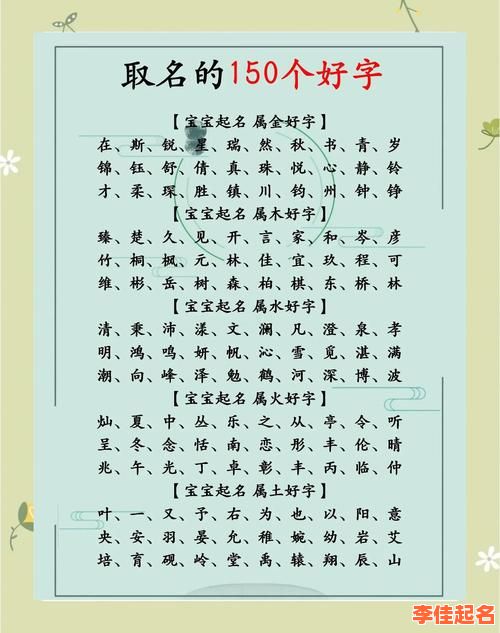 取名的150个好字
【宝宝起名 属金好字】
在、斯、锐、星、瑞、然、秋、书、青、岁
锦、钰、舒、倩、真、珠、悦、心、静、铃
才、柔、琛、胜、镇、川、钧、州、钟、铮
【宝宝起名 属木好字】
臻、楚、久、见、开、言、家、和、岑、彦
竹、桐、枫、元、林、佳、宜、玖、程、可
维、彬、岳、树、森、柏、棋、东、桥、林
【宝宝起名 属水好字】
清、秉、沛、漾、文、澜、凡、澄、泉、孝
明、鸿、鸣、妍、帆、沁、雪、觅、湛、满
潮、向、峰、泽、勉、鹤、河、深、博、波
【宝宝起名 属火好字】
灿、夏、中、丛、乐、之、从、亭、令、昕
呈、冬、念、恬、南、恋、彤、丰、伦、晴
兆、午、光、丁、卓、彰、丰、丙、临、仲
【宝宝起名 属土好字】
叶、一、又、予、右、为、也、以、阳、意
央、安、羽、晏、允、稚、婉、幼、岩、艾
培、育、砚、岭、堂、禹、辕、翔、辰、山
李佳起名